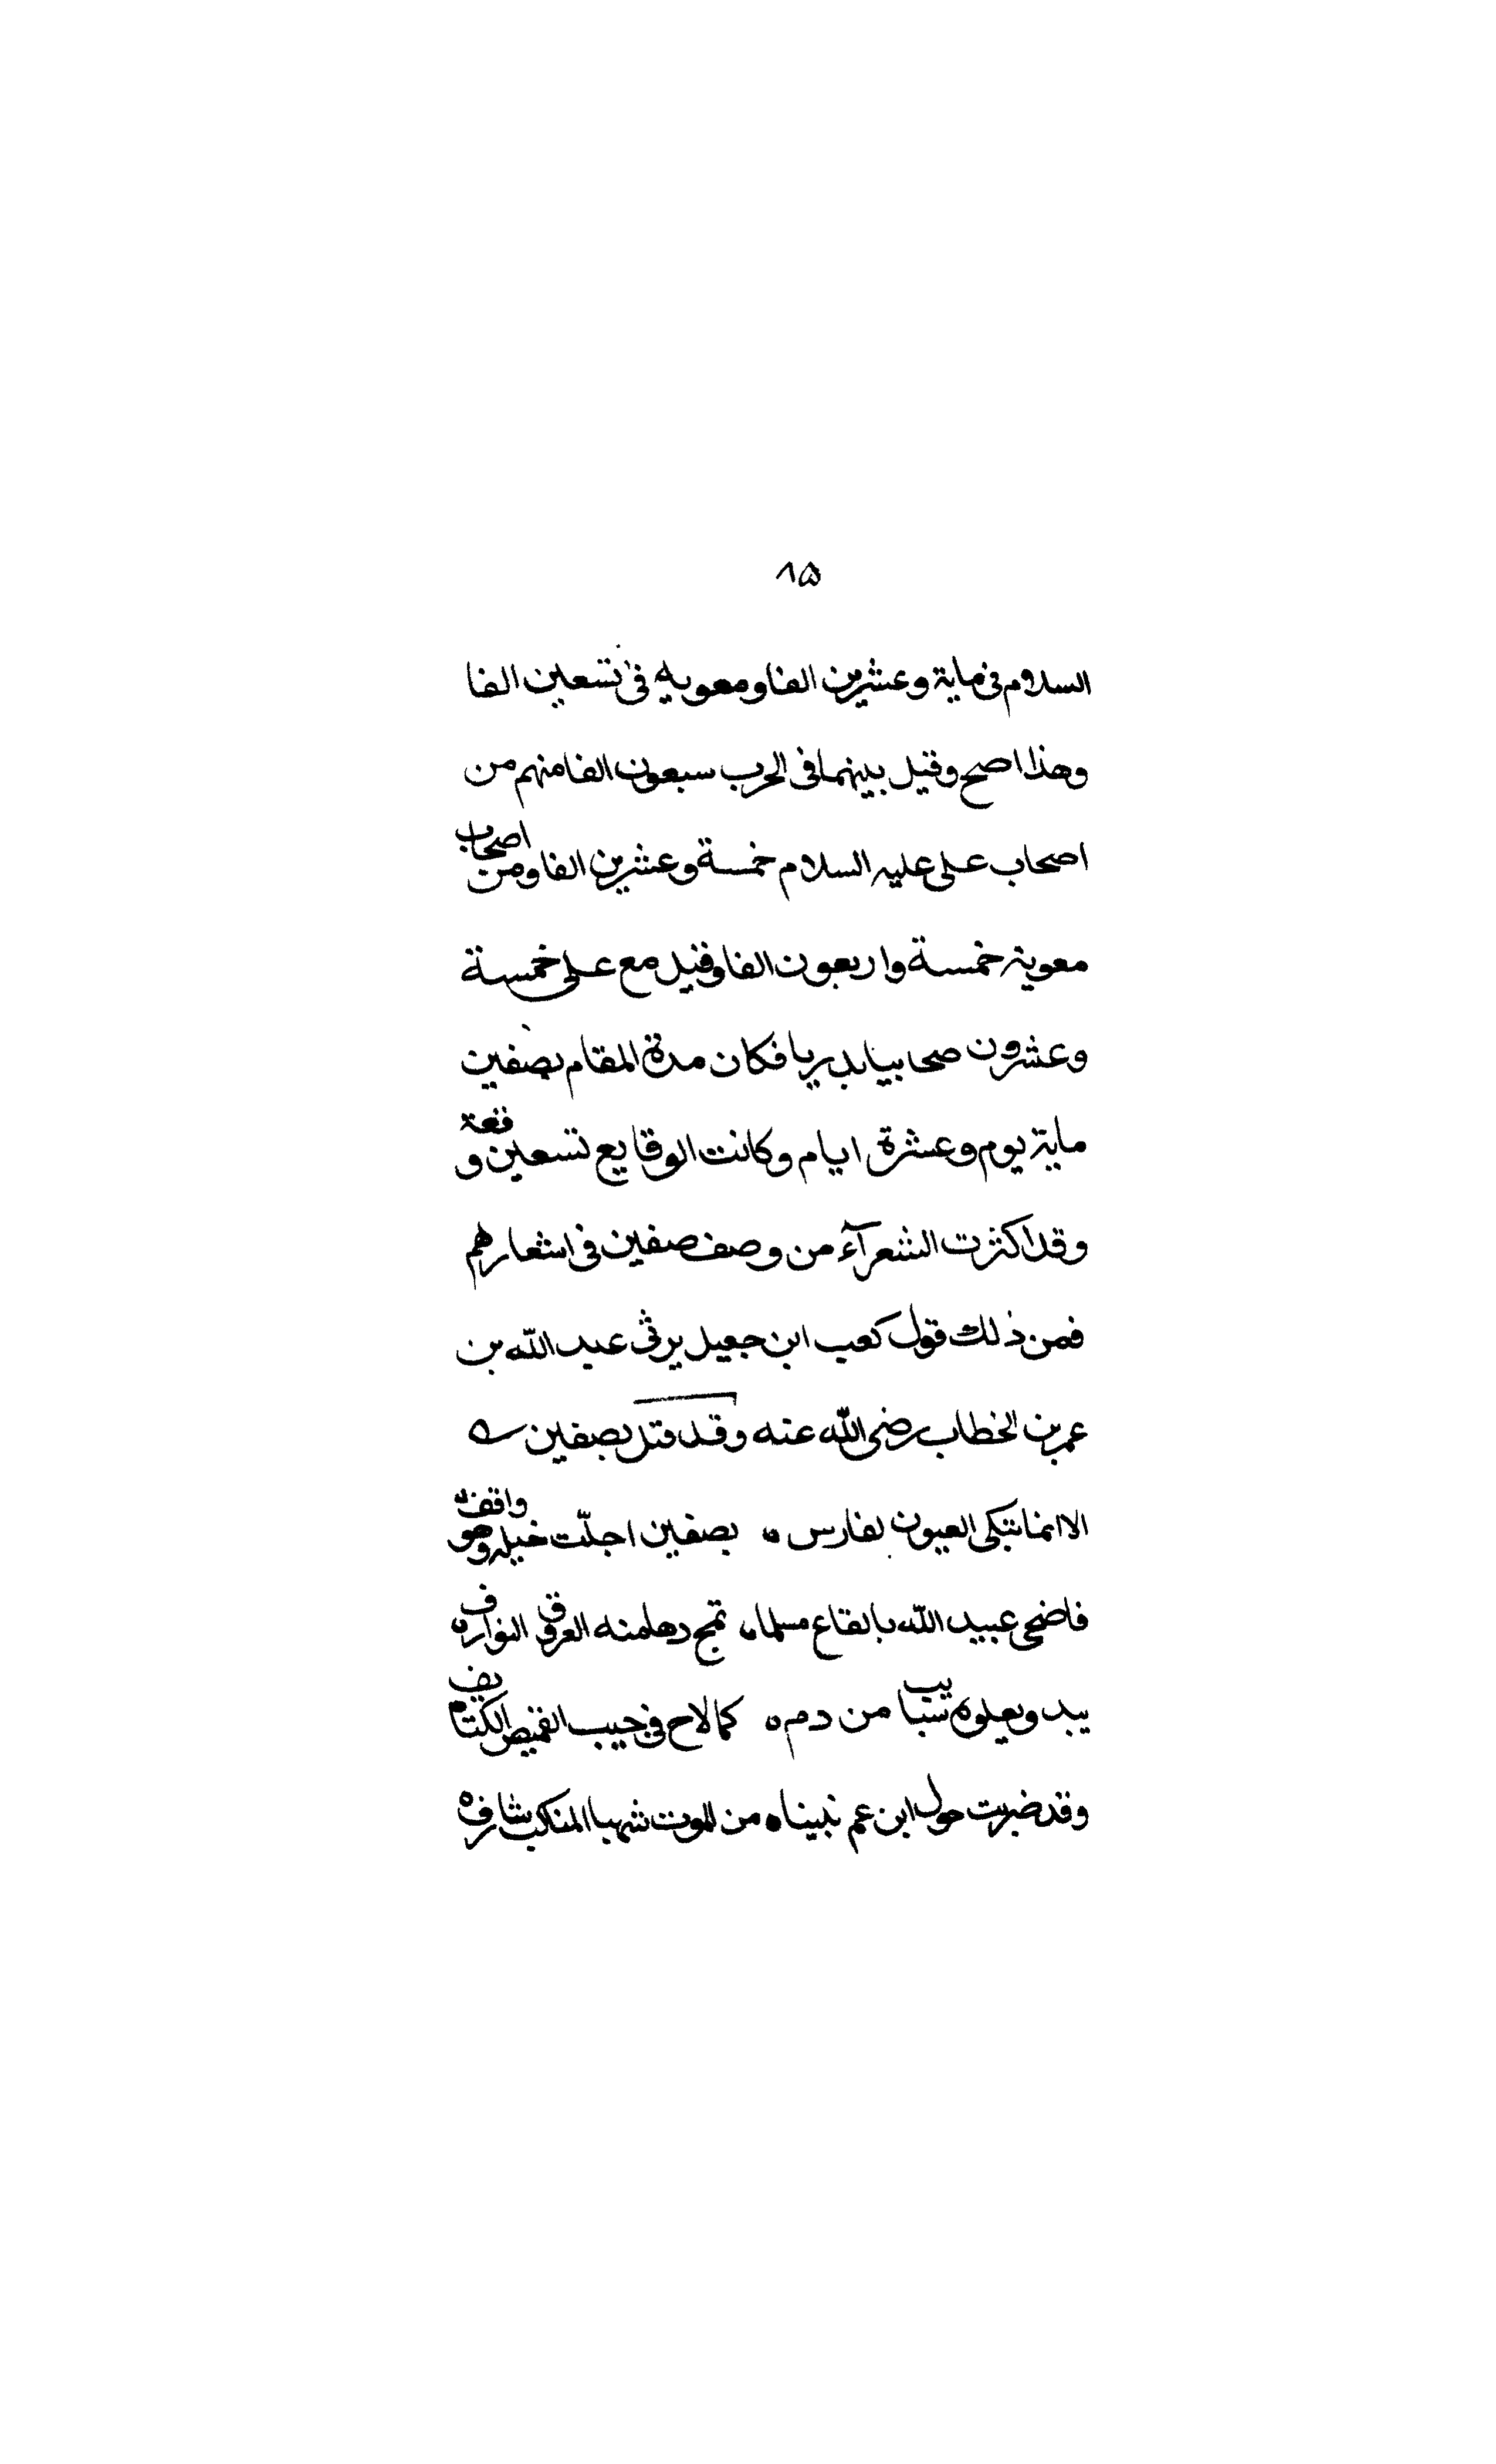 ٨٥
السلام فى ماية وعشرين الفا ومعويه فى تسعين الفا
وهذا اصح وقيل بينهما فى الحرب سبعون الفا منهم من
اصحاب على عليه السلام خمسة وعشرين الفا ومن اصحاب
معوية خمسة واربعون الفا وقيل مع على خمسة
وعشرون صحابيا بدريا فكان مدة المقام بصفين
ماية يوم وعشرة ايام وكانت الوقايع تسعين وقعة
وقد اكثرت الشعرآء من وصف صفين فى اشعارهم
فمن ذلك قول كعب ابن جعيل يرثى عبيد الله بن
عمر بن الخطاب رضى الله عنه وقد قتل بصفين
الا انما تبكى العيون لفارس ه بصفين اجلّت خيله وهو واقف ه
فاضحى عبيد الله بالقاع مسلما ه تمج دما منه العروق النوارف ه
يبدو ويعلوه سبايب من دم ه كما لاح فى جيب القميص الكتايف ه
وقد ضربت حول ابن عم نبينا ه من الموت شهبا المناكب شارف ه